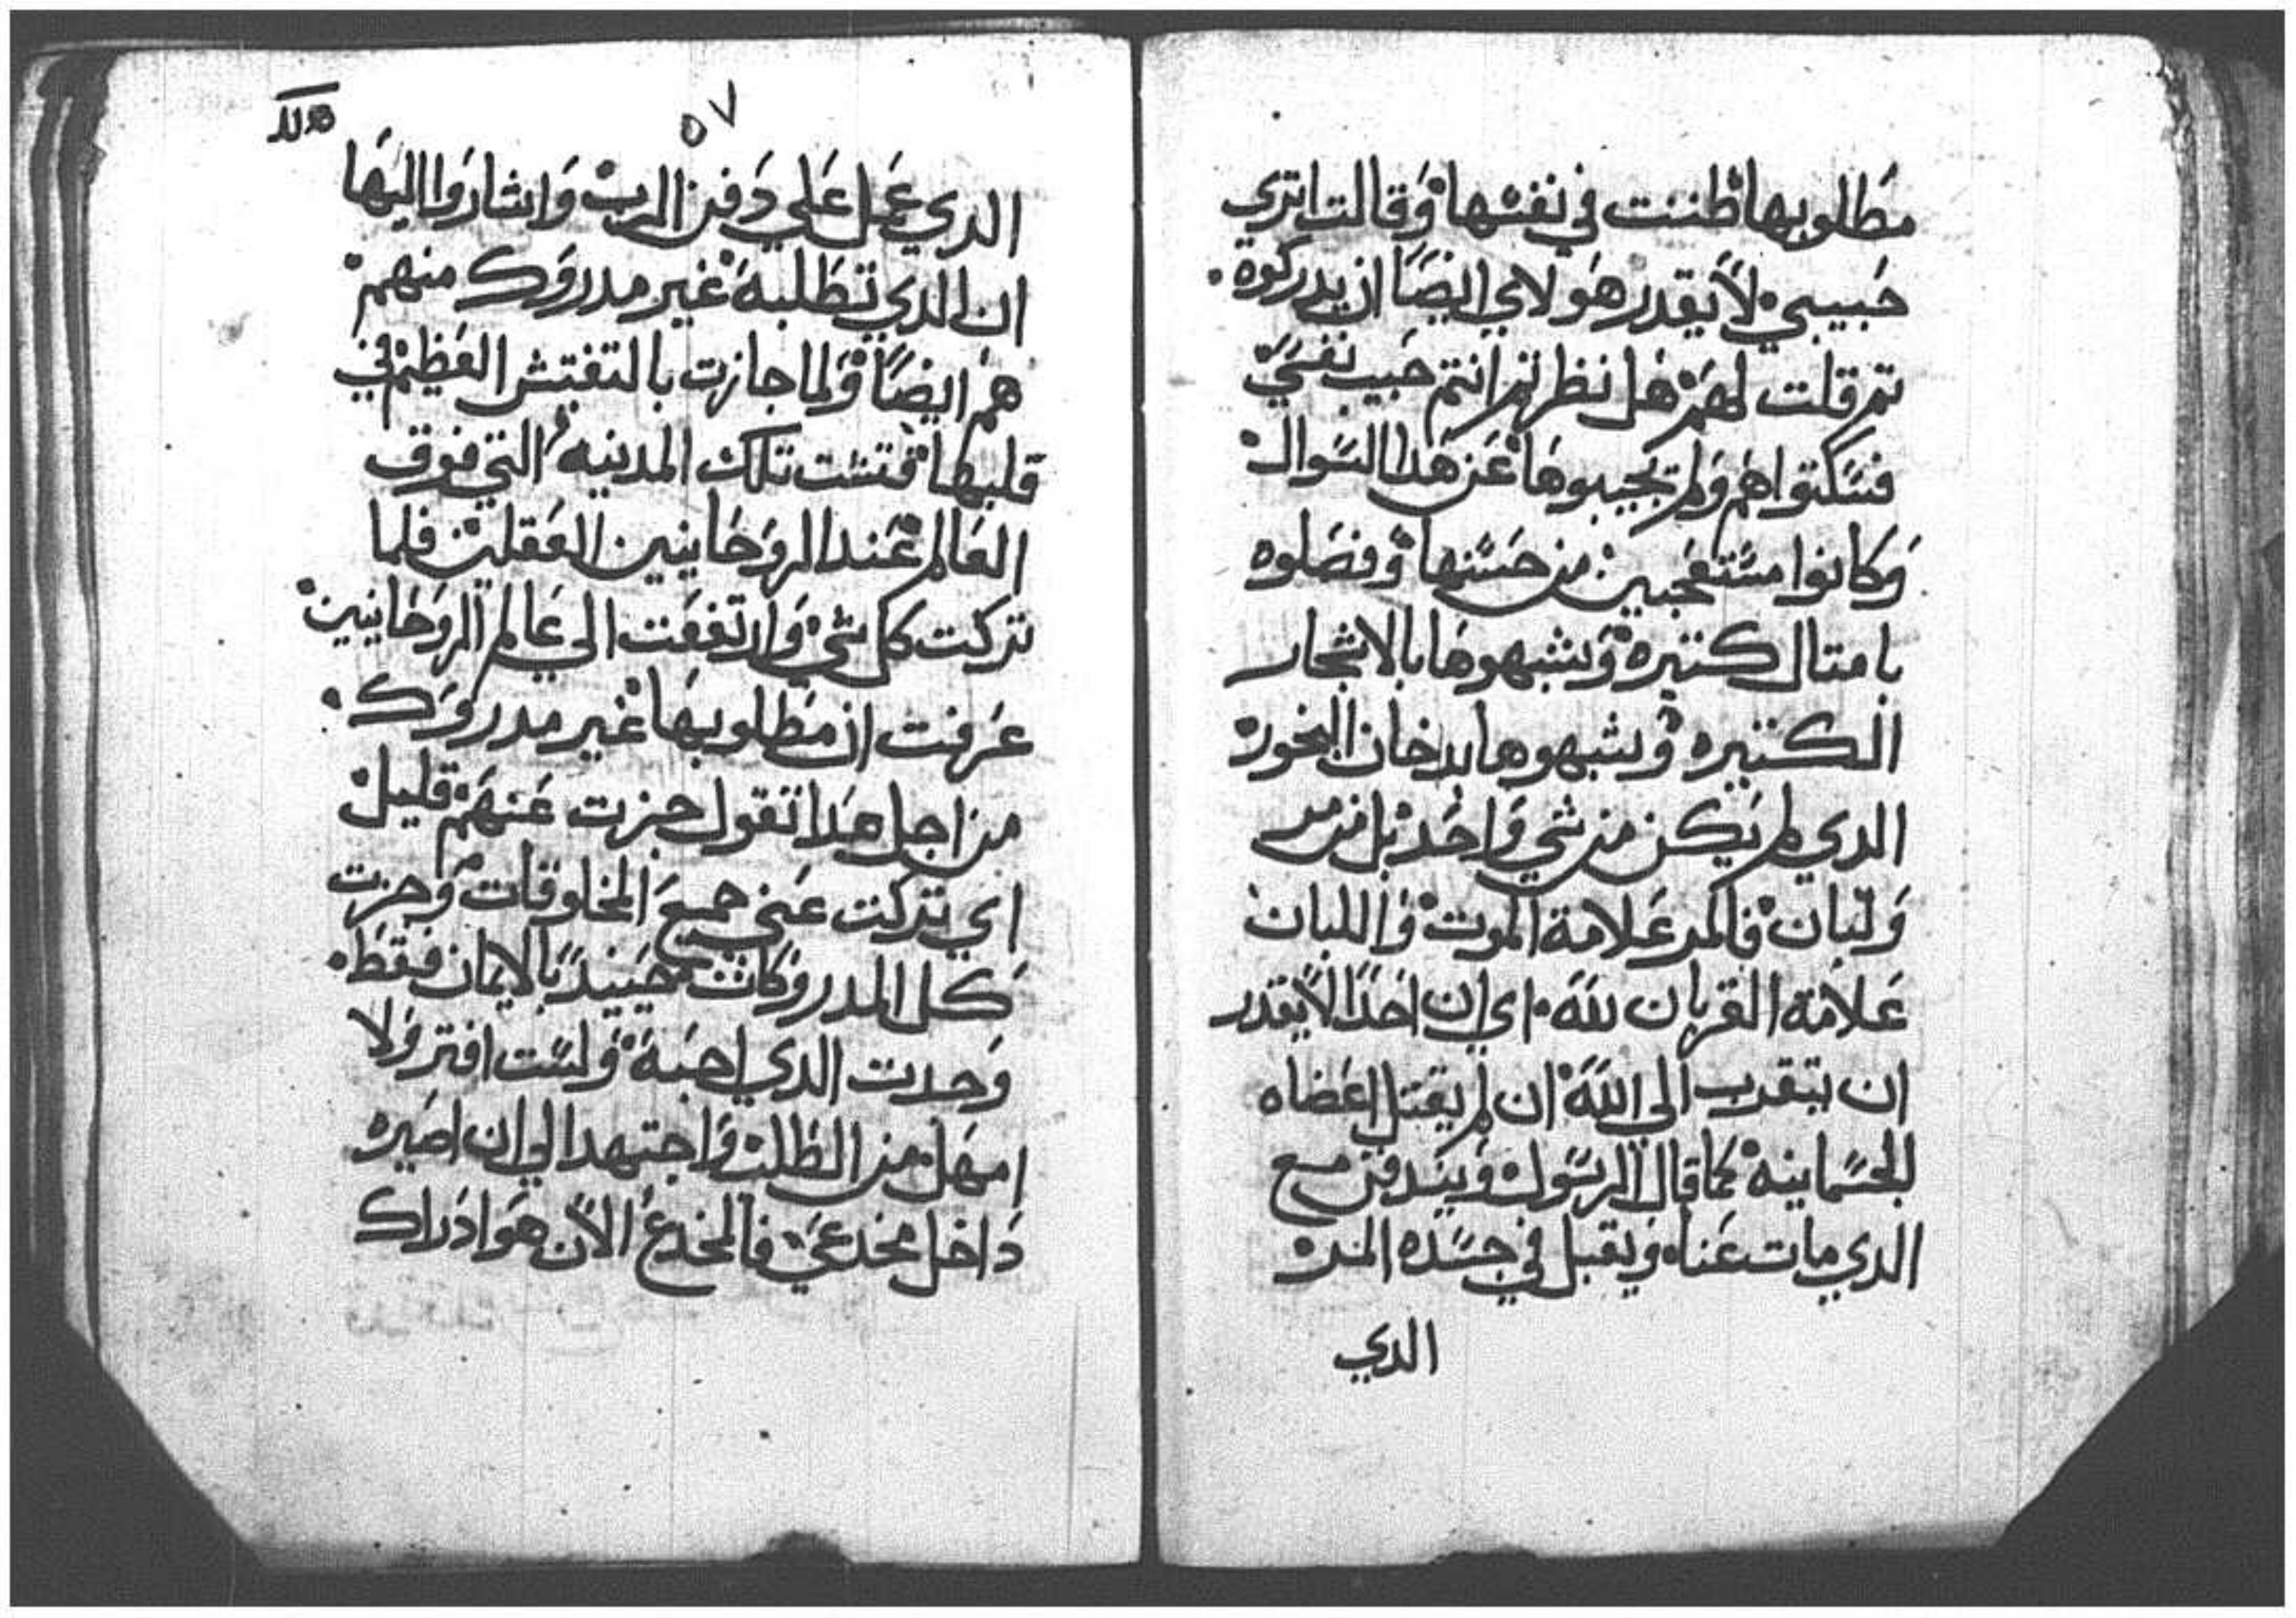 مَطلوبها ظننت في نفسها وَقالت اتري
حَبيبي لاَ يقدر هَولاي ايضَاً ان يدركوه.
تم قلت لهَم هَل نظرتم انتم حَبيب نفسَي
فسَكتوا هَم وَلم يجيبوهَا عَن هَدا السَوال
وَكانوا مسَتعَجبين من حَسَنها وَفضَلوه
بامتال كتيره وَيشبهوهَا بالاشجار
الكتيره وَيشبهوها بدخان البخور
الدي لم يَكن من شي وَاحَد بل من مر
وَلبان فالمر عَلامة الموت وَاللبان
عَلامَة القربان للهَ. اي ان احَدَا لاَ يقدر
ان يتقرب الى اللهَ ان لم يقتل اعَضاه
الجسَمانيه كما قال الرسَول وَيندفن مع
الدي مات عَناه وَيقبل في جسَده المر
الدي
٥٧
الدي عَمل عَلي دَفن الرب وَاشاروَا اليهَا
ان الدي تطَلبهَ غير مدروَك منهم
هَم ايضَاً وَلما جازت بالتفتيش العَظيم في
قلبهَا فتشت تلك المدينه التي فوق
العَالم عَند الروَحَانيين العَقليين فلما
تركت كل شي وَارتفعَت الي عَالم الروَحَانيين
عَرفت ان مطَلوبهَا غير مدروَك.
من اجل هَدا تقول جزت عَنهَم قليل
اي تركت عَني جميعَ المخلوقات وَجزت
كَل المدروَكات حَينيدَ بالايمان فقطَ.
وَجدت الدي احبهَ وَلسَت افتر وَلا
امهَل من الطَلب وَاجتهد الي ان اصَيره
دَاخل مخدعَي فالمخدعَ الاَن هَو ادَراك